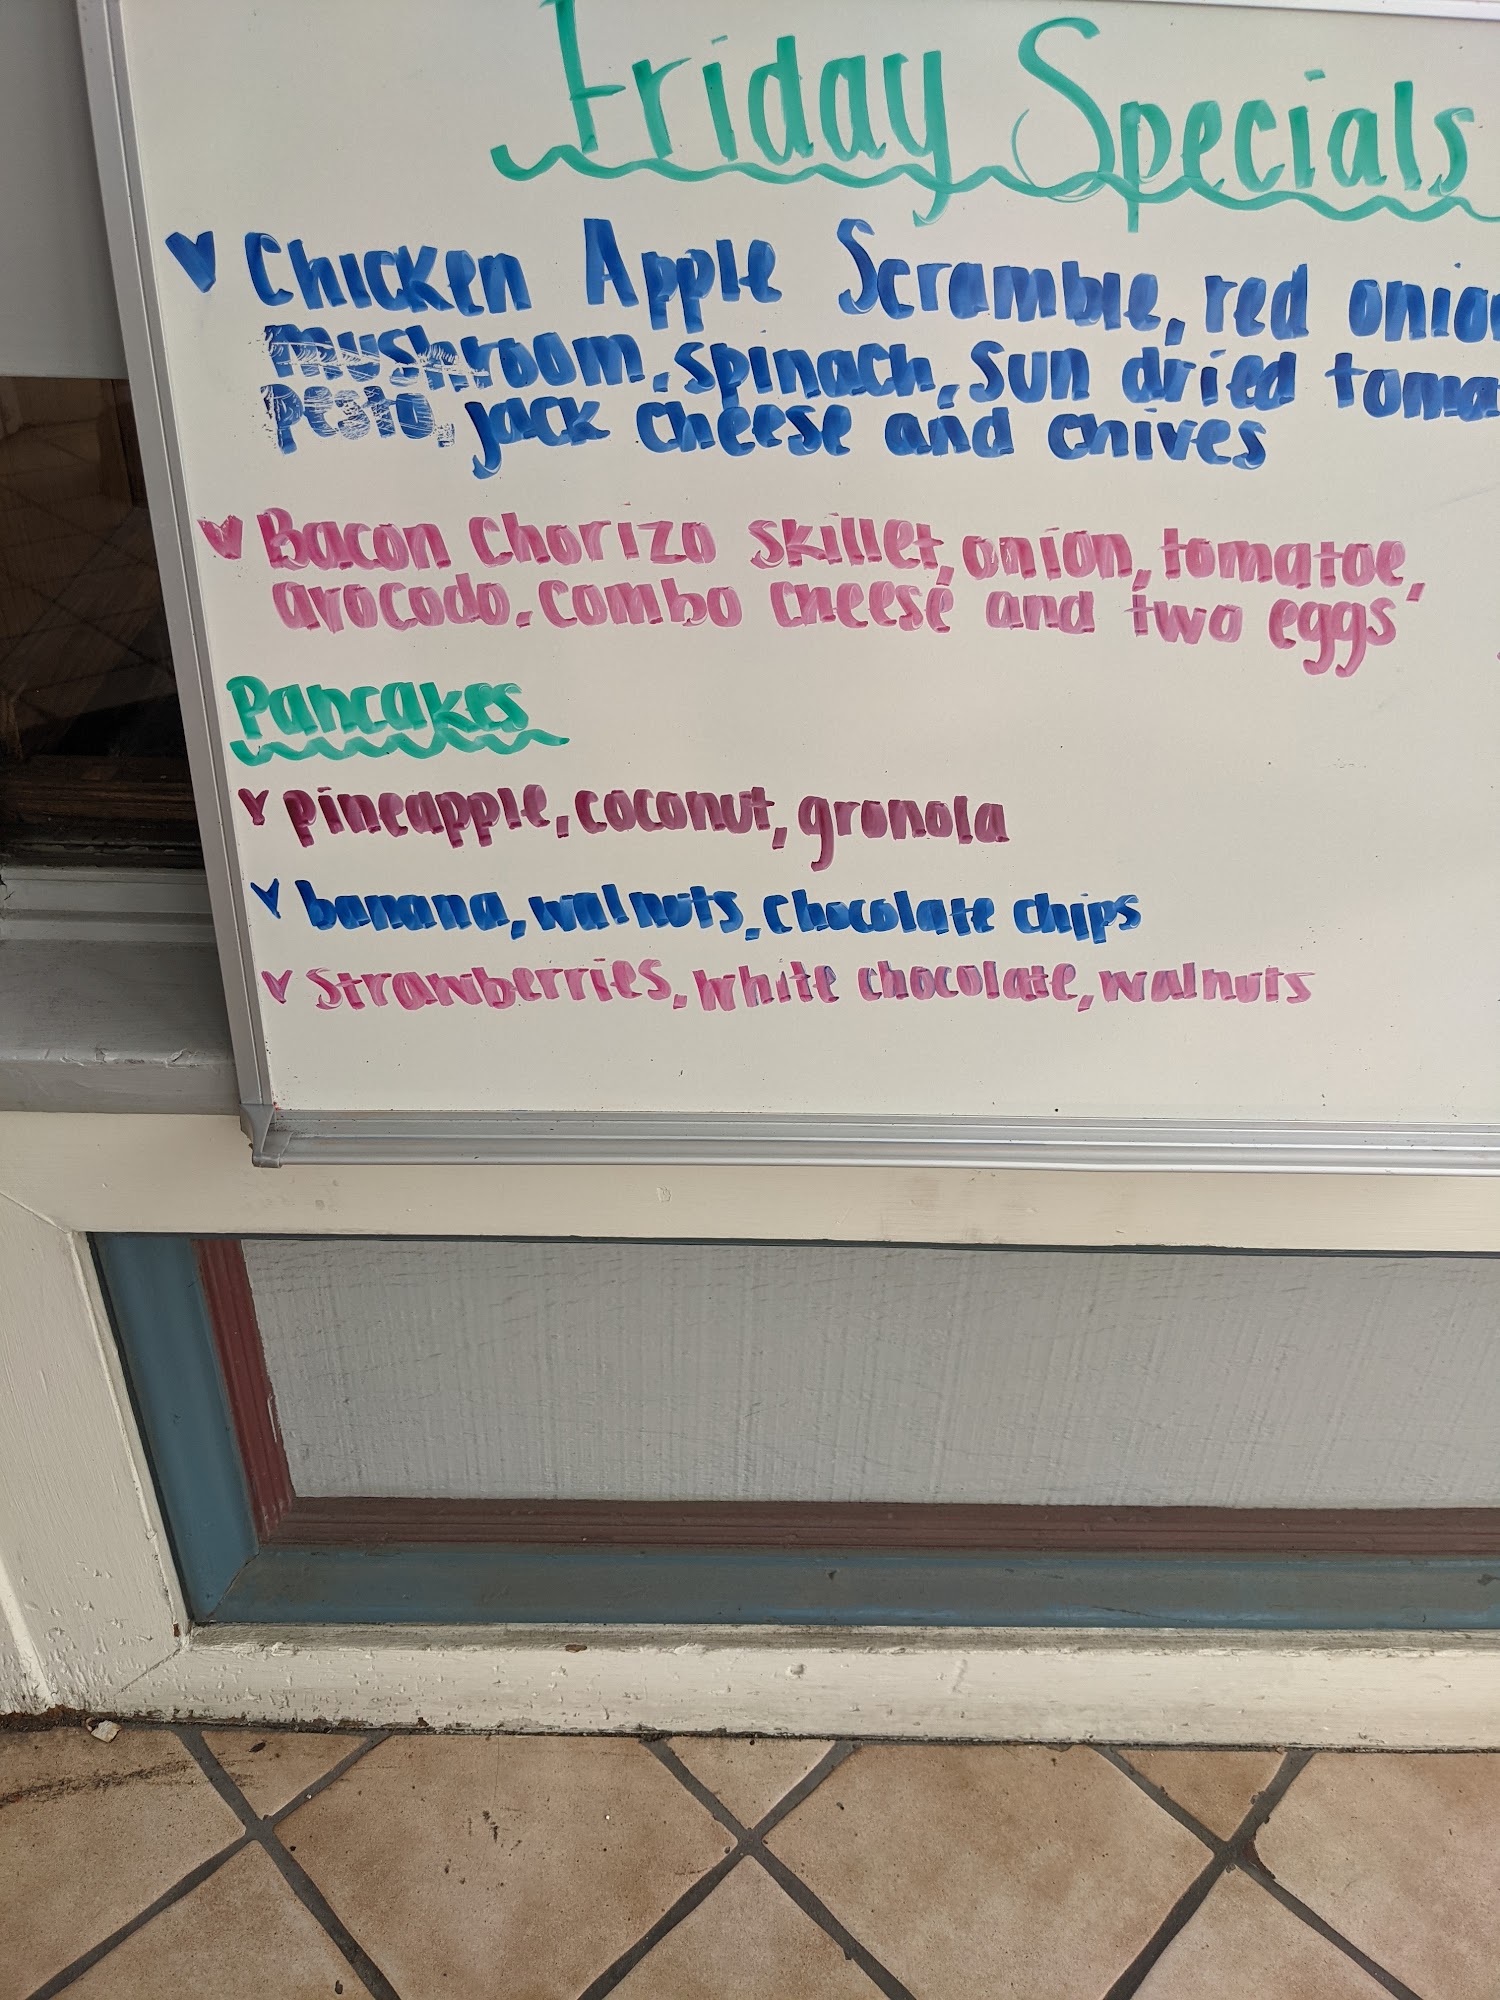 Friday Specials
Chicken Apple Scramble, red onion
mushroom, spinach, sun dried toma
pesto, jack cheese and chives
Bacon Chorizo skillet, onion, tomatoe,
avocodo, combo cheese and two eggs
Pancakes
pineapple, coconut, gronola
banana, walnuts, chocolate chips
Strawberries, white chocolate, walnuts